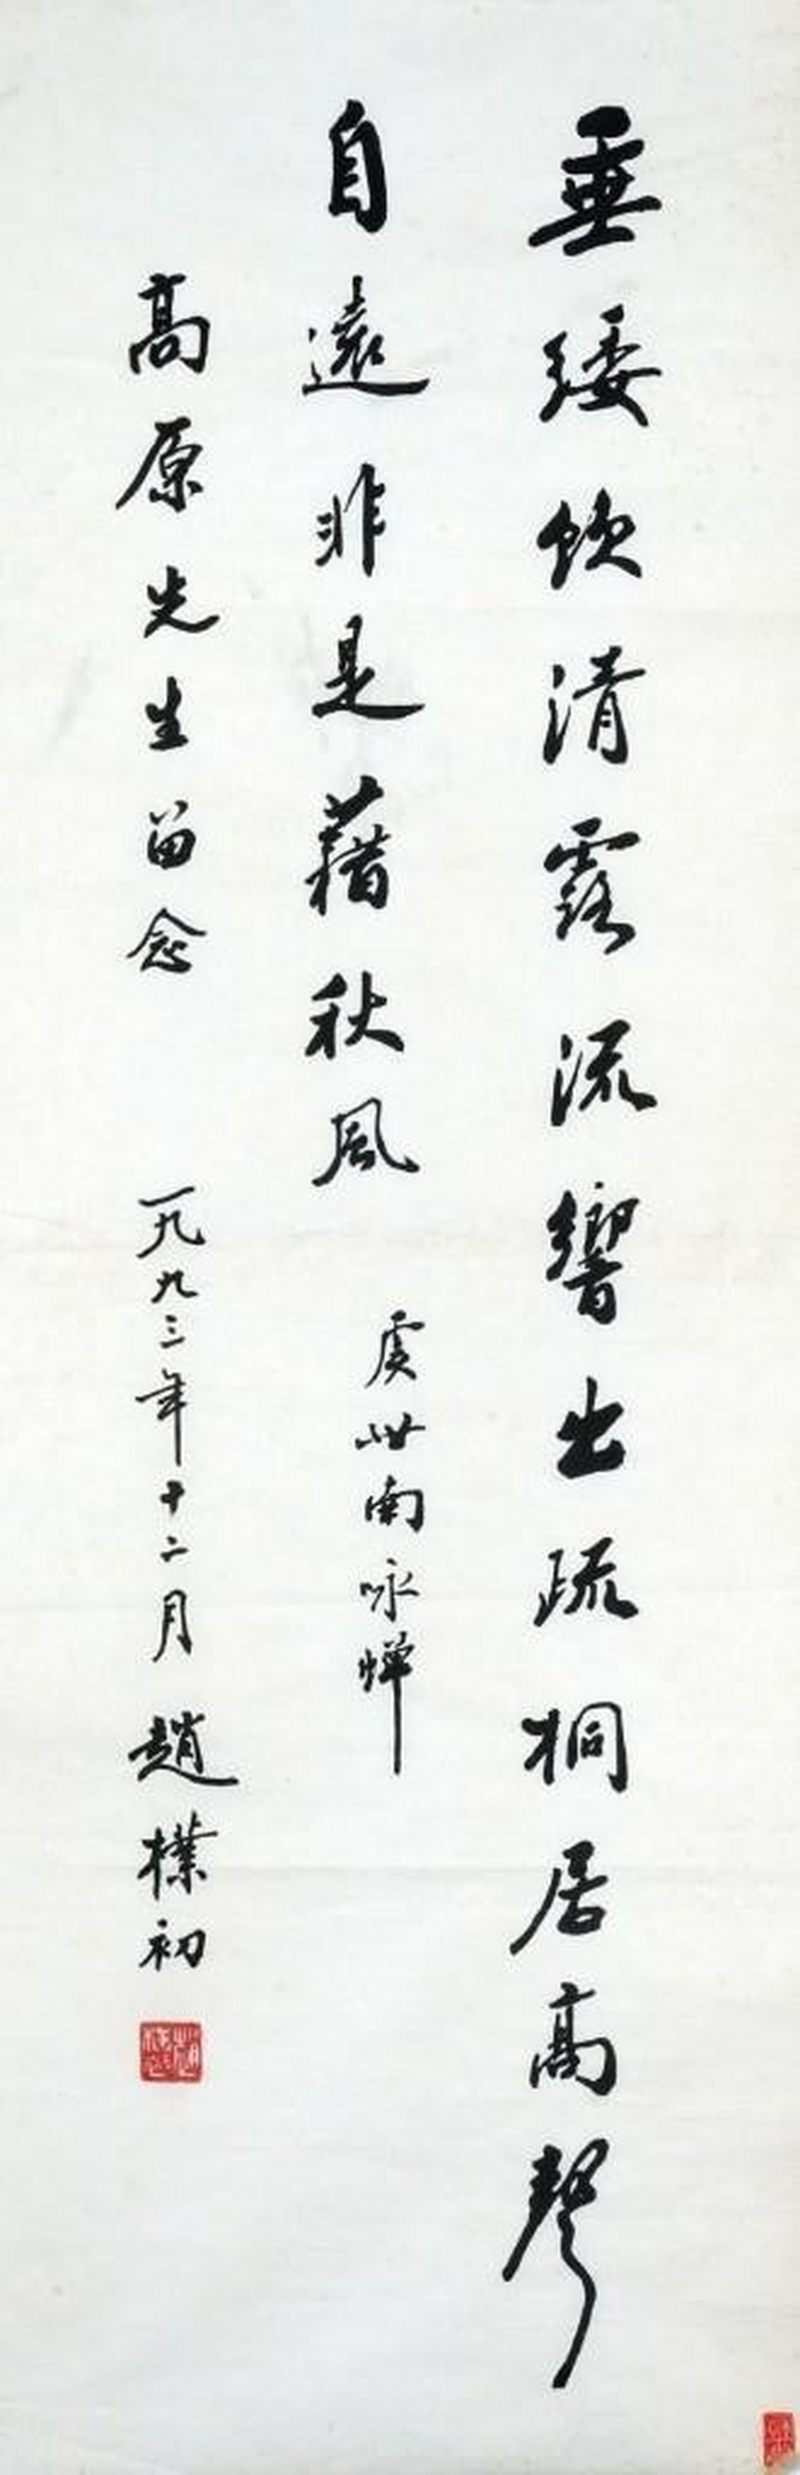 垂緌飲清露流響出疏桐居高聲
自遠非是藉秋風
虞世南咏蟬
高原先生留念
一九九三年十二月趙樸初